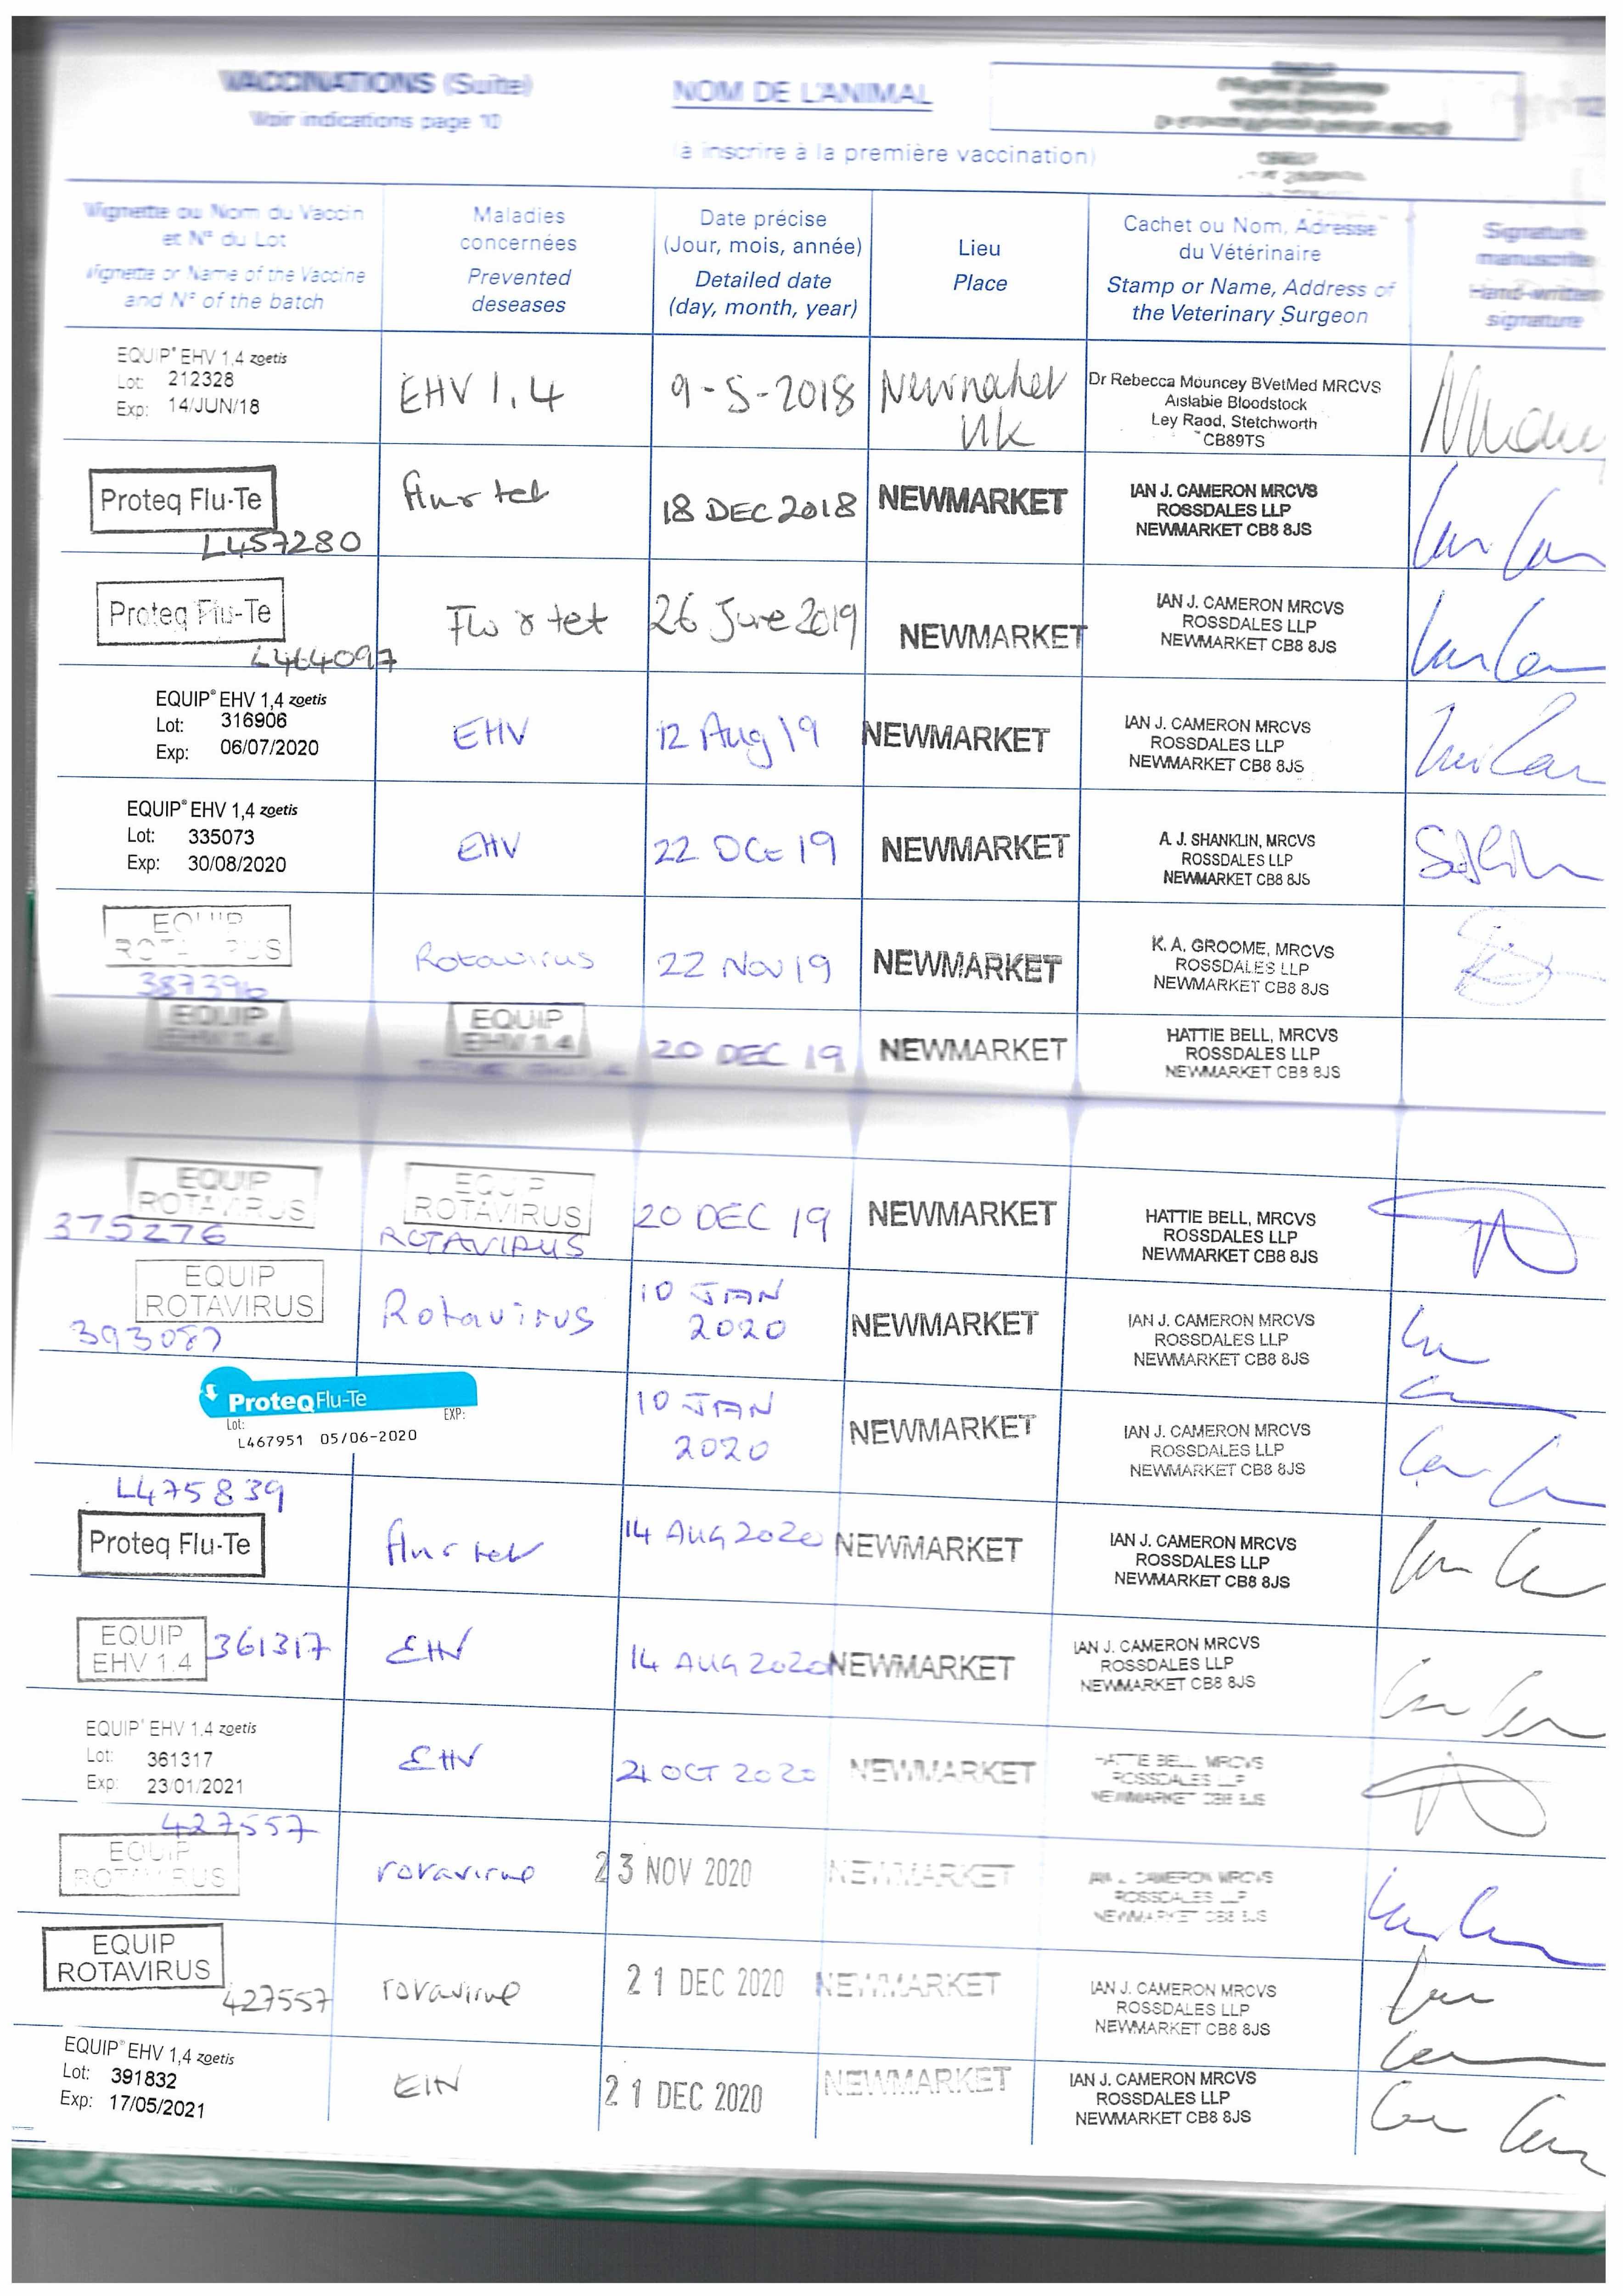 VACCINATIONS (Suite)
Voir indications page 10
NOM DE L'ANIMAL
(à inscrire à la première vaccination)
12
Vignette ou Nom du Vaccin
et N° du Lot
Vignette or Name of the Vaccine
and N° of the batch
Maladies
concernées
Prevented
deseases
Date précise
(Jour, mois, année)
Detailed date
(day, month, year)
Lieu
Place
Cachet ou Nom, Adresse
du Vétérinaire
Stamp or Name, Address of
the Veterinary Surgeon
Signature
manuscrite
Hand-written
signature
EQUIP® EHV 1,4 zoetis
Lot: 212328
Exp: 14/JUN/18
EHV 1,4
9-5-2018
Newmarket
UK
Dr Rebecca Mouncey BVetMed MRCVS
Aislabie Bloodstock
Ley Raod, Stetchworth
CB89TS
Proteq Flu-Te
L457280
flu & tet
18 DEC 2018
NEWMARKET
IAN J. CAMERON MRCVS
ROSSDALES LLP
NEWMARKET CB8 8JS
Proteq Flu-Te
L464097
Flu & tet
26 June 2019
NEWMARKET
IAN J. CAMERON MRCVS
ROSSDALES LLP
NEWMARKET CB8 8JS
EQUIP® EHV 1,4 zoetis
Lot: 316906
Exp: 06/07/2020
EHV
12 Aug 19
NEWMARKET
IAN J. CAMERON MRCVS
ROSSDALES LLP
NEWMARKET CB8 8JS
EQUIP® EHV 1,4 zoetis
Lot: 335073
Exp: 30/08/2020
EHV
22 Oct 19
NEWMARKET
A. J. SHANKLIN, MRCVS
ROSSDALES LLP
NEWMARKET CB8 8JS
EQUIP
ROTAVIRUS
387396
Rotavirus
22 Nov 19
NEWMARKET
K. A. GROOME, MRCVS
ROSSDALES LLP
NEWMARKET CB8 8JS
EQUIP
EHV 1.4
EQUIP
EHV 1.4
20 DEC 19
NEWMARKET
HATTIE BELL, MRCVS
ROSSDALES LLP
NEWMARKET CB8 8JS
EQUIP
ROTAVIRUS
375276
EQUIP
ROTAVIRUS
ROTAVIRUS
20 DEC 19
NEWMARKET
HATTIE BELL, MRCVS
ROSSDALES LLP
NEWMARKET CB8 8JS
EQUIP
ROTAVIRUS
393087
Rotavirus
10 JAN
2020
NEWMARKET
IAN J. CAMERON MRCVS
ROSSDALES LLP
NEWMARKET CB8 8JS
ProteqFlu-Te
Lot: EXP:
L467951 05/06-2020
10 JAN
2020
NEWMARKET
IAN J. CAMERON MRCVS
ROSSDALES LLP
NEWMARKET CB8 8JS
L475839
Proteq Flu-Te
flu & tet
14 AUG 2020
NEWMARKET
IAN J. CAMERON MRCVS
ROSSDALES LLP
NEWMARKET CB8 8JS
EQUIP
EHV 1.4
361317
EHV
14 AUG 2020
NEWMARKET
IAN J. CAMERON MRCVS
ROSSDALES LLP
NEWMARKET CB8 8JS
EQUIP® EHV 1,4 zoetis
Lot: 361317
Exp: 23/01/2021
EHV
21 OCT 2020
NEWMARKET
HATTIE BELL, MRCVS
ROSSDALES LLP
NEWMARKET CB8 8JS
427557
EQUIP
ROTAVIRUS
rotavirus
23 NOV 2020
NEWMARKET
IAN J. CAMERON MRCVS
ROSSDALES LLP
NEWMARKET CB8 8JS
EQUIP
ROTAVIRUS
427557
rotavirus
21 DEC 2020
NEWMARKET
IAN J. CAMERON MRCVS
ROSSDALES LLP
NEWMARKET CB8 8JS
EQUIP® EHV 1,4 zoetis
Lot: 391832
Exp: 17/05/2021
EHV
21 DEC 2020
NEWMARKET
IAN J. CAMERON MRCVS
ROSSDALES LLP
NEWMARKET CB8 8JS